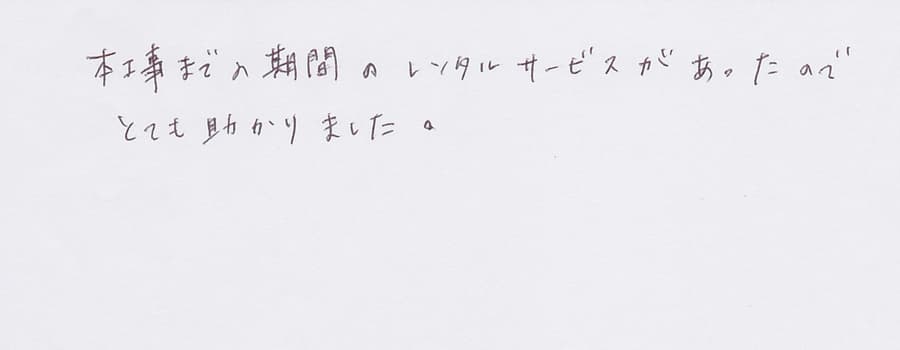 本工事までの期間のレンタルサービスがあったので
とても助かりました。